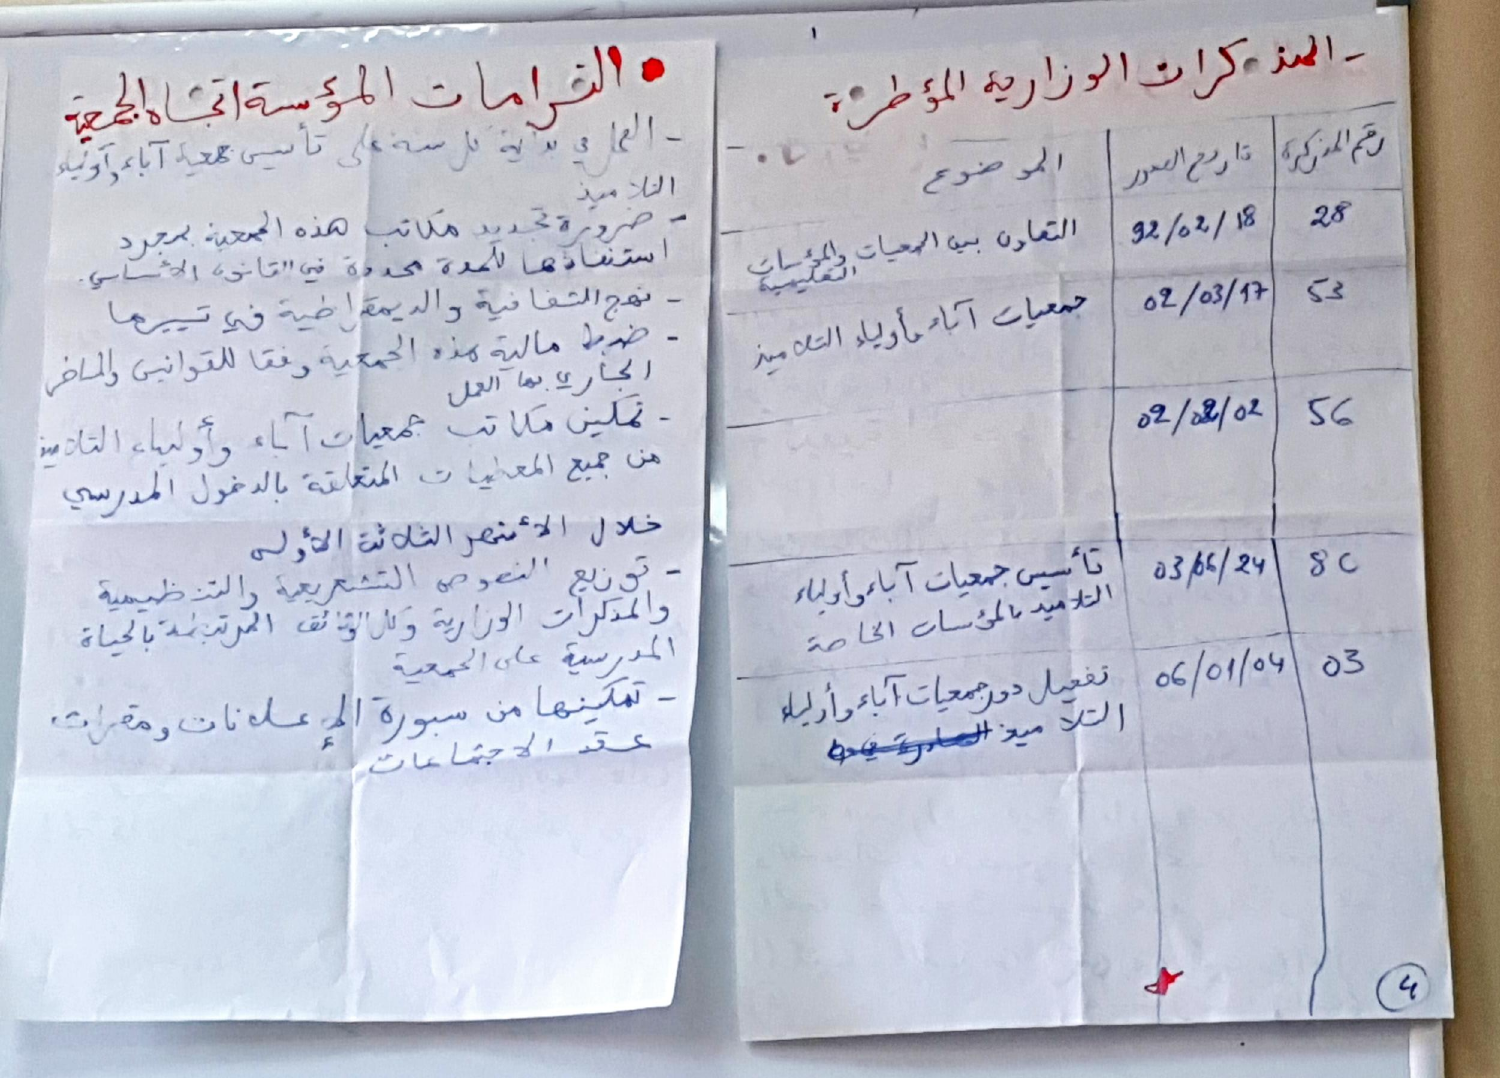 - المذكرات الوزارية المؤطرة
رقم المذكرة تاريخ الصدور الموضوع
28 92/02/18 التعاون بين الجمعيات والمؤسسات
التعليمية
53 02/03/17 جمعيات آباء وأولياء التلاميذ
56 02/02/02
03/06/24 تأسيس جمعيات آباء وأولياء
التلاميذ بالمؤسسات الخاصة
03 06/01/04 تفعيل دور جمعيات آباء وأولياء
التلاميذ
4
• التزامات المؤسسة اتجاه الجمعية
- العمل في بداية كل سنة على تأسيس جمعية آباء وأولياء
التلاميذ
- ضرورة تجديد مكاتب هذه الجمعية بمجرد
استنفادها للمدة محددة في القانون الأساسي.
- نهج الشفافية والديمقراطية في تسييرها
- ضبط مالية هذه الجمعية وفقا للقوانين
الجاري بها العمل
- تمكين مكاتب جمعيات آباء وأولياء التلاميذ
من جميع المعطيات المتعلقة بالدخول المدرسي
خلال الأشهر الثلاثة الأولى
- توزيع النصوص التشريعية والتنظيمية
والمذكرات الوزارية وكل الوثائق المرتبطة بالحياة
المدرسية على الجمعية
- تمكينها من سبورة الإعلانات ومقرات
عقد الاجتماعات